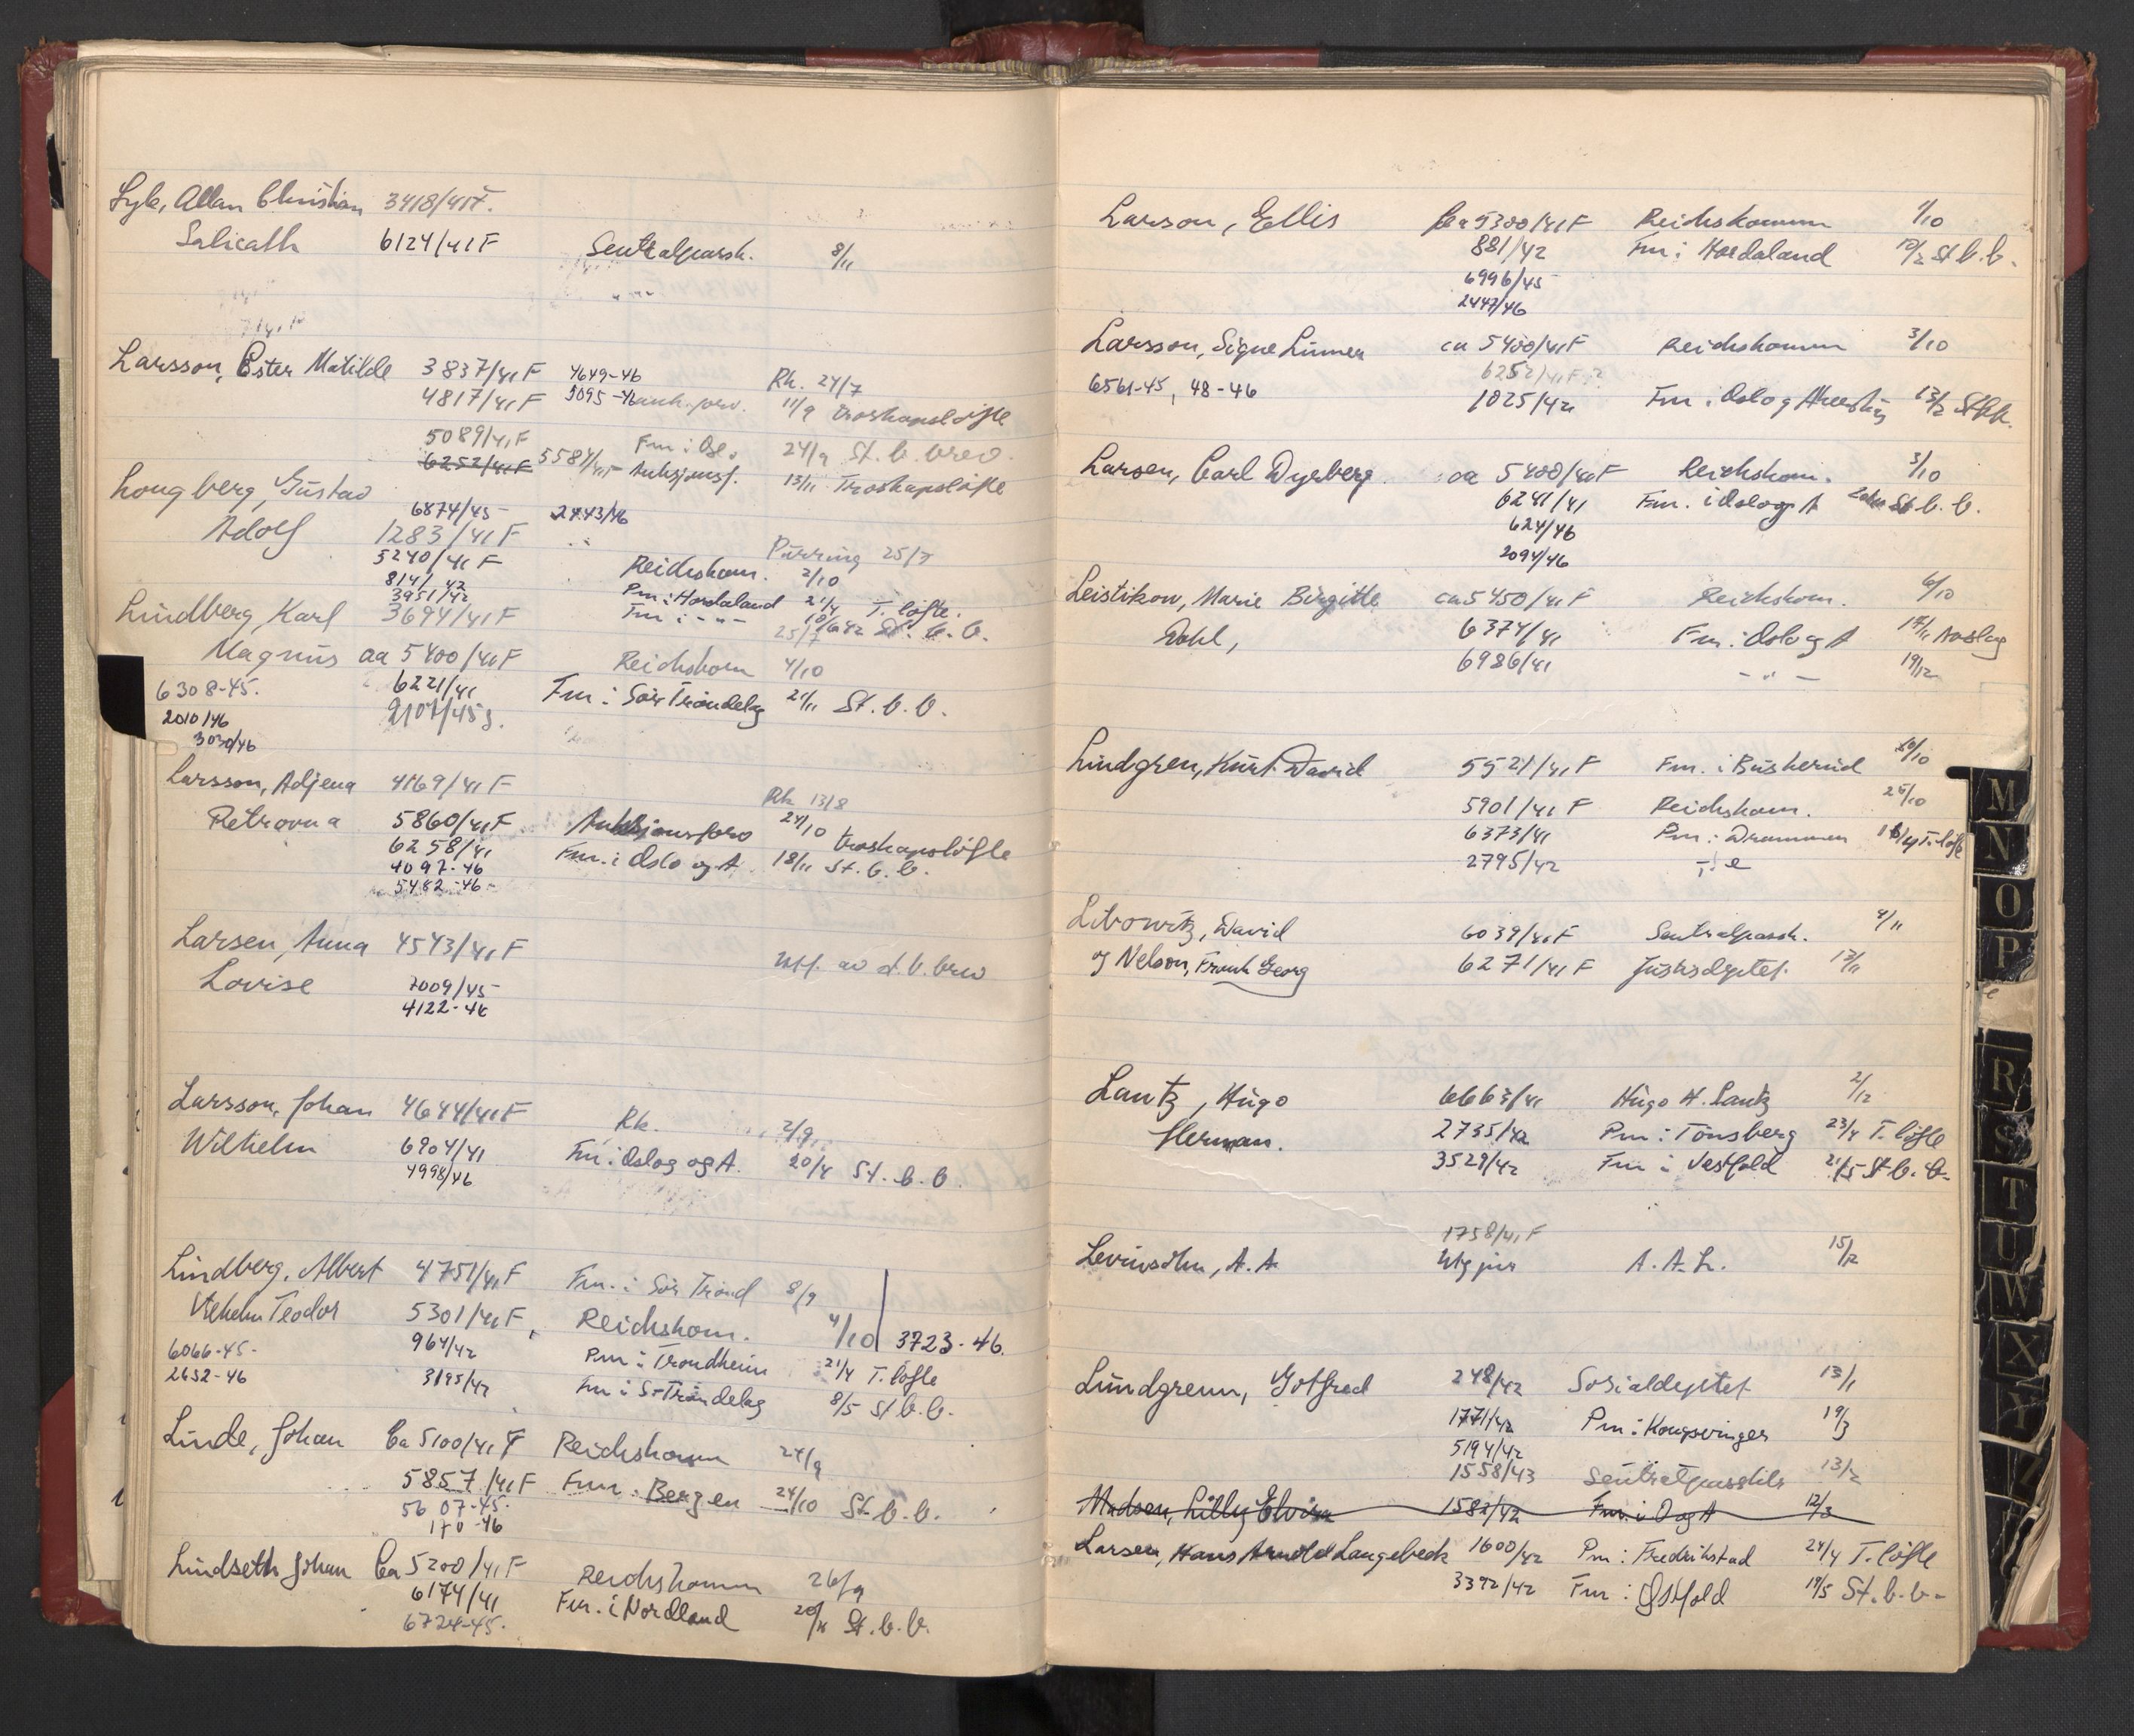 Lyle, Allan Christian 3418/41F.
Salicath 6124/41F Sentralpassk. 8/11
Larsson, Ester Matilde 3837/41F 4649-46 Rk. 24/7
4817/41F 5095-46 11/9 troskapsløfte
5089/41F Fm i Osl. 24/9 St.b. brev.
6252/41F 5584/41F Auksjonsf. 13/11 Troskapsløfte
Longberg, Gustav 6874/45 2443/46
Adolf 1283/41F Purring 25/7
5240/41F Reichskom. 2/10
814/42 Pm i Hordaland 21/4 T. løfte.
3951/42 Fm i -"- 10/6 42 St. b. b.
Lindberg, Karl 3694/41F 25/7
Magnus ca 5400/41F Reichskom 4/10
6308-45. 6221/41 Fm i Sør Trøndelag 21/11 St. b. b.
2010/46 2107/45 J.
3030/46
Larsson, Adjena 4169/41F Rk 13/8
Petrovna 5860/41F Auksjonsforv 24/10 troskapsløfte
6258/41 Fm. i Oslo og A. 18/11 St. b. b.
4097-46
5482-46
Larsen, Anna 4543/41F utf. av st. b. brev
Lovise 7009/45
4122-46
Larsson, Johan 4644/41F Rk. 2/9
Wilhelm 6904/41 Fm i Oslog og A. 20/4 St. b. b.
4998/46
Lindberg, Albert 4751/41F Fm. i Sør Trønd 8/9
Vilhelm Teodor 5301/41F, Reichskom. 4/10 3723-46.
6066-45- 964/42 Pm i Trondheim 21/4 T. løfte
2652-46 3195/42 Fm i S-Trøndelag 8/5 St b. b.
Linde, Johan Ca 5100/41F Reichskomm 24/9
5857/41F Fm i Bergen 24/10 St. b. b.
5607-45-
170-46
Lindseth Johan Ca 5200/41F Reichskomm 26/9
6174/41 Fm. i Nordland 20/11 St. b. b.
6724-45.
Larson, Ellis Ca 5300/41F Reichskomm 1/10
881/42 Fm i Hordaland 10/2 St b. b.
6996/45
2447/46
Larsson, Signe Linnea ca 5400/41F Reichskomm 3/10
6252/41F ?
6561-45, 48-46 1025/42 Fm i Oslo og Akershus 13/2 St.b.b.
Larsen, Carl Dyrberg ca 5400/41F Reichskom. 3/10
6241/41 Fm. i Oslo og A St b. b.
624/46
2094/46
Leistikow, Marie Birgitte ca 5450/41F Reichskom. 6/10
Dahl, 6374/41 Fm. i Oslo og A 17/11 Avslag
6986/41 -"- 19/12
Lindgren, Kurt David 5521/41F Fm. i Buskerud 10/10
5901/41F Reichskom. 25/10
6373/41 Pm i Drammen T. løfte
2795/42
Libowitz, David 6039/41F Sentralpassk. 4/11
og Nelson, Frank Georg 6271/41F Justisdeptet. 13/11
Lantz, Hugo 6663/41 Hugo H. Lantz 2/12
Herman. 2735/42 Pm i Tønsberg 23/4 T. løfte
3529/42 Fm i Vestfold 21/5 St b. b.
1758/41F
Levinsohn, A. A. Utgjør A. A. L. 15/12
Lundgrenn, Gotfred 248/42 Sosialdeptet 13/1
1771/42 Pm i Kongsvinger 19/3
5194/42
1558/43 Sentralpassktr 13/2
Madsen, Lilly Elvira 1582/42 Fm. i O og A 12/3
Larsen, Hans Arnold Langebeck 1600/42 Pm i Fredrikstad 24/4 T. løfte
3392/42 Fm i Østfold 19/5 St. b. b.
M
N
O
P
R
S
T
U
W
X
Y